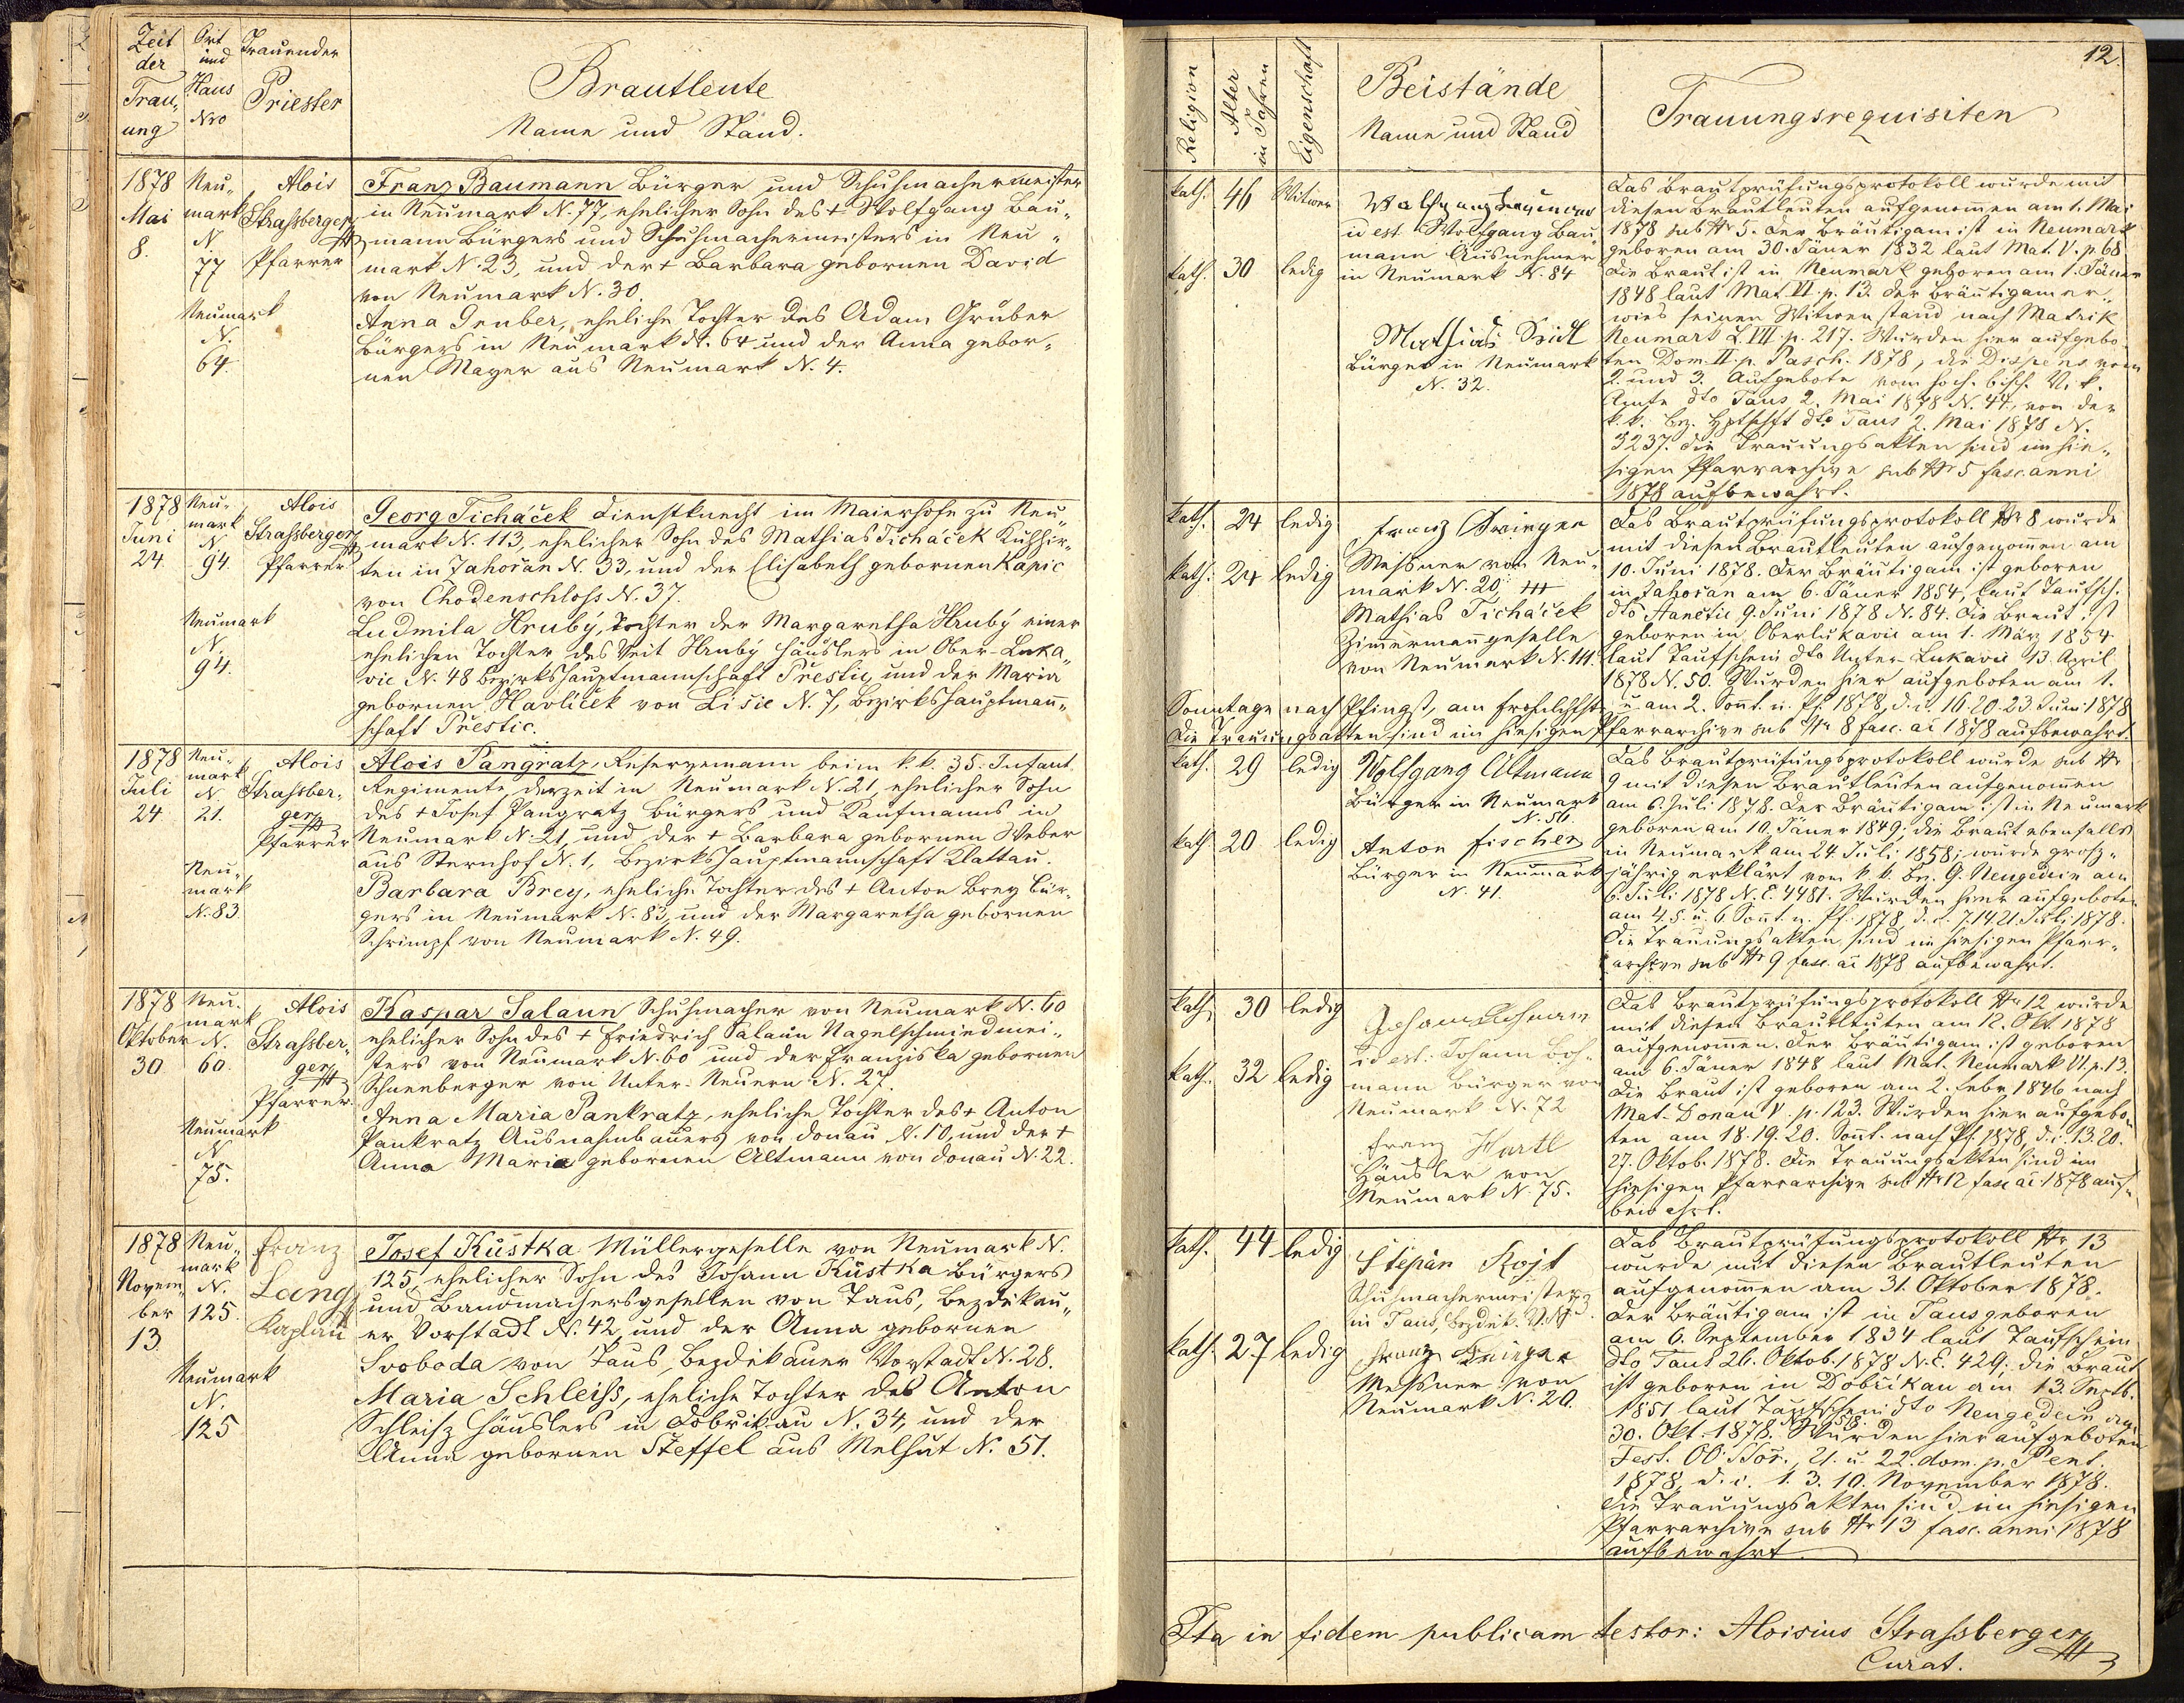 Zeit der Trauung
Ort und Haus Nro
Trauender Priester
Brautleute
Name und Stand.
1878 Mai 8.
Neumark N 77
Neumark N. 64.
Alois Strassberger Pfarrer
Franz Baumann Bürger und Schuhmachermeister
in Neumark N. 77, ehelicher Sohn des + Wolfgang Bau„
mann Bürgers und Schuhmachermeisters in Neu„
mark N. 23, und der + Barbara gebornen David
von Neumark N. 30.
Anna Gruber, eheliche Tochter des Adam Gruber
Bürgers in Neumark N. 64 und der Anna gebor„
nen Mayer aus Neumark N. 4.
1878 Juni 24
Neumark N 94.
Neumark N. 94.
Alois Strassberger Pfarrer
Georg Ticháček Dienstknecht im Maierhofe zu Neu„
mark N. 113, ehelicher Sohn des Mathias Ticháček Kuhhir„
ten in Zahořan N. 33, und der Elisabeth gebornen Kapic
von Chodenschloss N. 37.
Ludmila Hrubý, Tochter der Margaretha Hrubý einer
ehelichen Tochter des Veit Hrubý Häuslers in Ober-Luka„
vic N. 48 Bezirkshauptmannschaft Přestic, und der Maria
gebornen Havlíček von Lišic N. 7, Bezirkshauptmañ„
schaft Přestic.
1878 Juli 24
Neumark N 21.
Neumark N. 83.
Alois Strassberger Pfarrer
Alois Pangratz, Reservemann beim k. k. 35. Infant.
Regimente, derzeit in Neumark N. 21, ehelicher Sohn
des + Josef Pangratz Bürgers und Kaufmanns in
Neumark N. 21, und der + Barbara gebornen Weber
aus Sternhof N. 1, Bezirkshauptmannschaft Klattau.
Barbara Brey, eheliche Tochter des + Anton Brey Bür„
gers in Neumark N. 83, und der Margaretha gebornen
Schrimpf von Neumark N. 49.
1878 Oktober 30
Neumark N. 60.
Neumark N 75.
Alois Strassberger Pfarrer.
Kaspar Salaun Schuhmacher von Neumark N. 60
ehelicher Sohn des + Friedrich Salaun Nagelschmiedmei„
sters von Neumark N. 60 und der Franziska gebornen
Schneeberger von Unter-Neuern N. 27.
Anna Maria Pankratz, eheliche Tochter des + Anton
Pankratz Ausnahmbauers von Donau N. 10, und der +
Anna Maria gebornen Altmann von Donau N. 22.
1878 November 13
Neumark N. 125.
Neumark N. 125
Franz Lang Kaplan
Josef Kůstka Müllergeselle von Neumark N.
125, ehelicher Sohn des Johann Kůstka Bürgers
und Bandmachersgesellen von Taus, Bezdĕkau„
er Vorstadt N. 42, und der Anna gebornen
Svoboda von Taus, Bezdĕkauer Vorstadt N. 28.
Maria Schleiss, eheliche Tochter des Anton
Schleiss Häuslers in Dobřikau N. 34, und der
Anna gebornen Steffel aus Melhut N. 51.
12.
Religion
Alter in Jahren
Eigenschaft
Beistände,
Name und Stand
Trauungsrequisiten
kath. 46 Witwer
kath. 30 ledig
Wolfgang
id est Wolfgang Bau„
mann Ausnehmer
in Neumark N. 84
Mathias Seidl
Bürger in Neumark
N. 32.
Das Brautprüfungsprotokoll wurde mit
diesen Brautleuten aufgenom̄en am 1. Mai
1878 sub Nr 5. Der Bräutigam ist in Neumark
geboren am 30. Jäner 1832 laut Mat. V. p. 68
die Braut ist in Neumark geboren am 1. Jäner
1848 laut Mat. VI. p. 13. Der Bräutigam er„
wies seinen Witwenstand nach Matrik
Neumark L. VII. p. 217. Wurden hier aufgebo„
ten Dom. II. p. Pasch. 1878, die Dispens vom
2. und 3. Aufgebote vom hoch. bisch. Vik.
Amte dto Taus 2. Mai 1878 N. 44, von der
k. k. Bez. Hptschft dto Taus 2. Mai 1878 N.
3237. Die Trauungsakten sind im hie„
sigen Pfarrarchive sub Nr 5 fasc. anni
1878 aufbewahrt.
kath. 24 ledig
kath. 24 ledig
Franz
Messner von Neu„
mark N. 20,
Mathias Ticháček
Zim̄ermañgeselle
von Neumark N. 111.
Das Brautprüfungsprotokoll Nr 8 wurde
mit diesen Brautleuten aufgenom̄en am
10. Juni 1878. Der Bräutigam ist geboren
in Zahořan am 6. Jäner 1854, laut Taufsch.
dto Hanĕtic 9. Juni 1878 N. 84. Die Braut ist
geboren in Oberlukavic am 1. März 1854
laut Taufschein dto Unter-Lukavic 13. April
1878 N. 50. Wurden hier aufgeboten am 1.
Sonntage nach Pfingst, am Frohnlchfste u. am 2. Son̄t. n. Pf. 1878, d. i. 16. 20. 23. Juni 1878
Die Trauungsakten sind im hiesigen Pfarrarchive sub Nr 8 fasc. ai 1878 aufbewahrt.
kath. 29 ledig
kath. 20 ledig
Wolfgang Altmann
Bürger in Neumark
N. 56.
Anton Fischer
Bürger in Neumark
N. 41.
Das Brautprüfungsprotokoll wurde sub Nr
9 mit diesen Brautleuten aufgenom̄en
am 6. Juli 1878. Der Bräutigam ist in Neumark
geboren am 10. Jäner 1849; die Braut ebenfalls
in Neumark am 24. Juli 1858; wurde gross„
jährig erklärt vom k. k. Bez. G. Neugedein am
6. Juli 1878 N. E. 4481. Wurden hier aufgeboten
am 4. 5. u. 6. Son̄t. n. Pf. 1878 d. i. 7. 14. 21. Juli 1878.
Die Trauungsakten sind im hiesigen Pfarr„
archive sub Nr 9 fasc. ai 1878 aufbewahrt.
kath. 30 ledig
kath. 32 ledig
Johann
id est: Johann Böh„
mann Bürger von
Neumark N. 72
Franz Hartl
Häusler von
Neumark N. 75.
Das Brautprüfungsprotokoll Nr 12 wurde
mit diesen Brautleuten am 12. Okt. 1878
aufgenom̄en. Der Bräutigam ist geboren
am 6. Jäner 1848 laut Mat. Neumark VI. p. 13.
Die Braut ist geboren am 2. Febr. 1846 nach
Mat. Donau V. p. 123. Wurden hier aufgebo„
ten am 18. 19. 20. Son̄t. nach Pf. 1878, d. i. 13. 20.
27. Oktob. 1878. Die Trauungsakten sind im
hiesigen Pfarrarchive sub Nr 12 fasc ai 1878 auf„
bewahrt.
kath. 44 ledig
kath. 27 ledig
Štĕpán Kojt
Schuhmachermeister
in Taus, Bezdĕk. V.
Franz
Messner von
Neumark N. 20.
Das Brautprüfungsprotokoll Nr 13
wurde mit diesen Brautleuten
aufgenom̄en am 31. Oktober 1878.
Der Bräutigam ist in Taus geboren
am 6. September 1834 laut Taufschein
dto Taus 26. Oktob. 1878 N. E. 429; die Braut
ist geboren in Dobřikau am 13. Septb.
1851 laut Taufschein dto Neugedein
30. Okt. 1878. Wurden hier aufgeboten
Fest. OO. SSor., 21. u. 22. dom. p. Pent.
1878, d. i. 1. 3. 10. November 1878.
Die Trauungsakten sind im hiesigen
Pfarrarchive sub Nr 13 fasc. anni 1878
aufbewahrt
Ita in fidem publicam testor: Aloisius Strassberger
Curat.